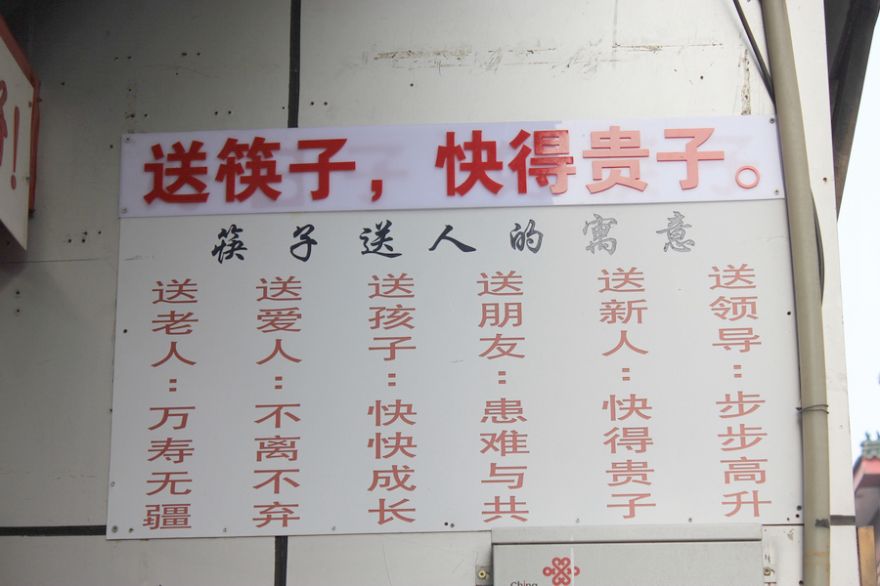 送筷子，快得贵子。
筷子送人的寓意
送老人：万寿无疆
送爱人：不离不弃
送孩子：快快成长
送朋友：患难与共
送新人：快得贵子
送领导：步步高升
China